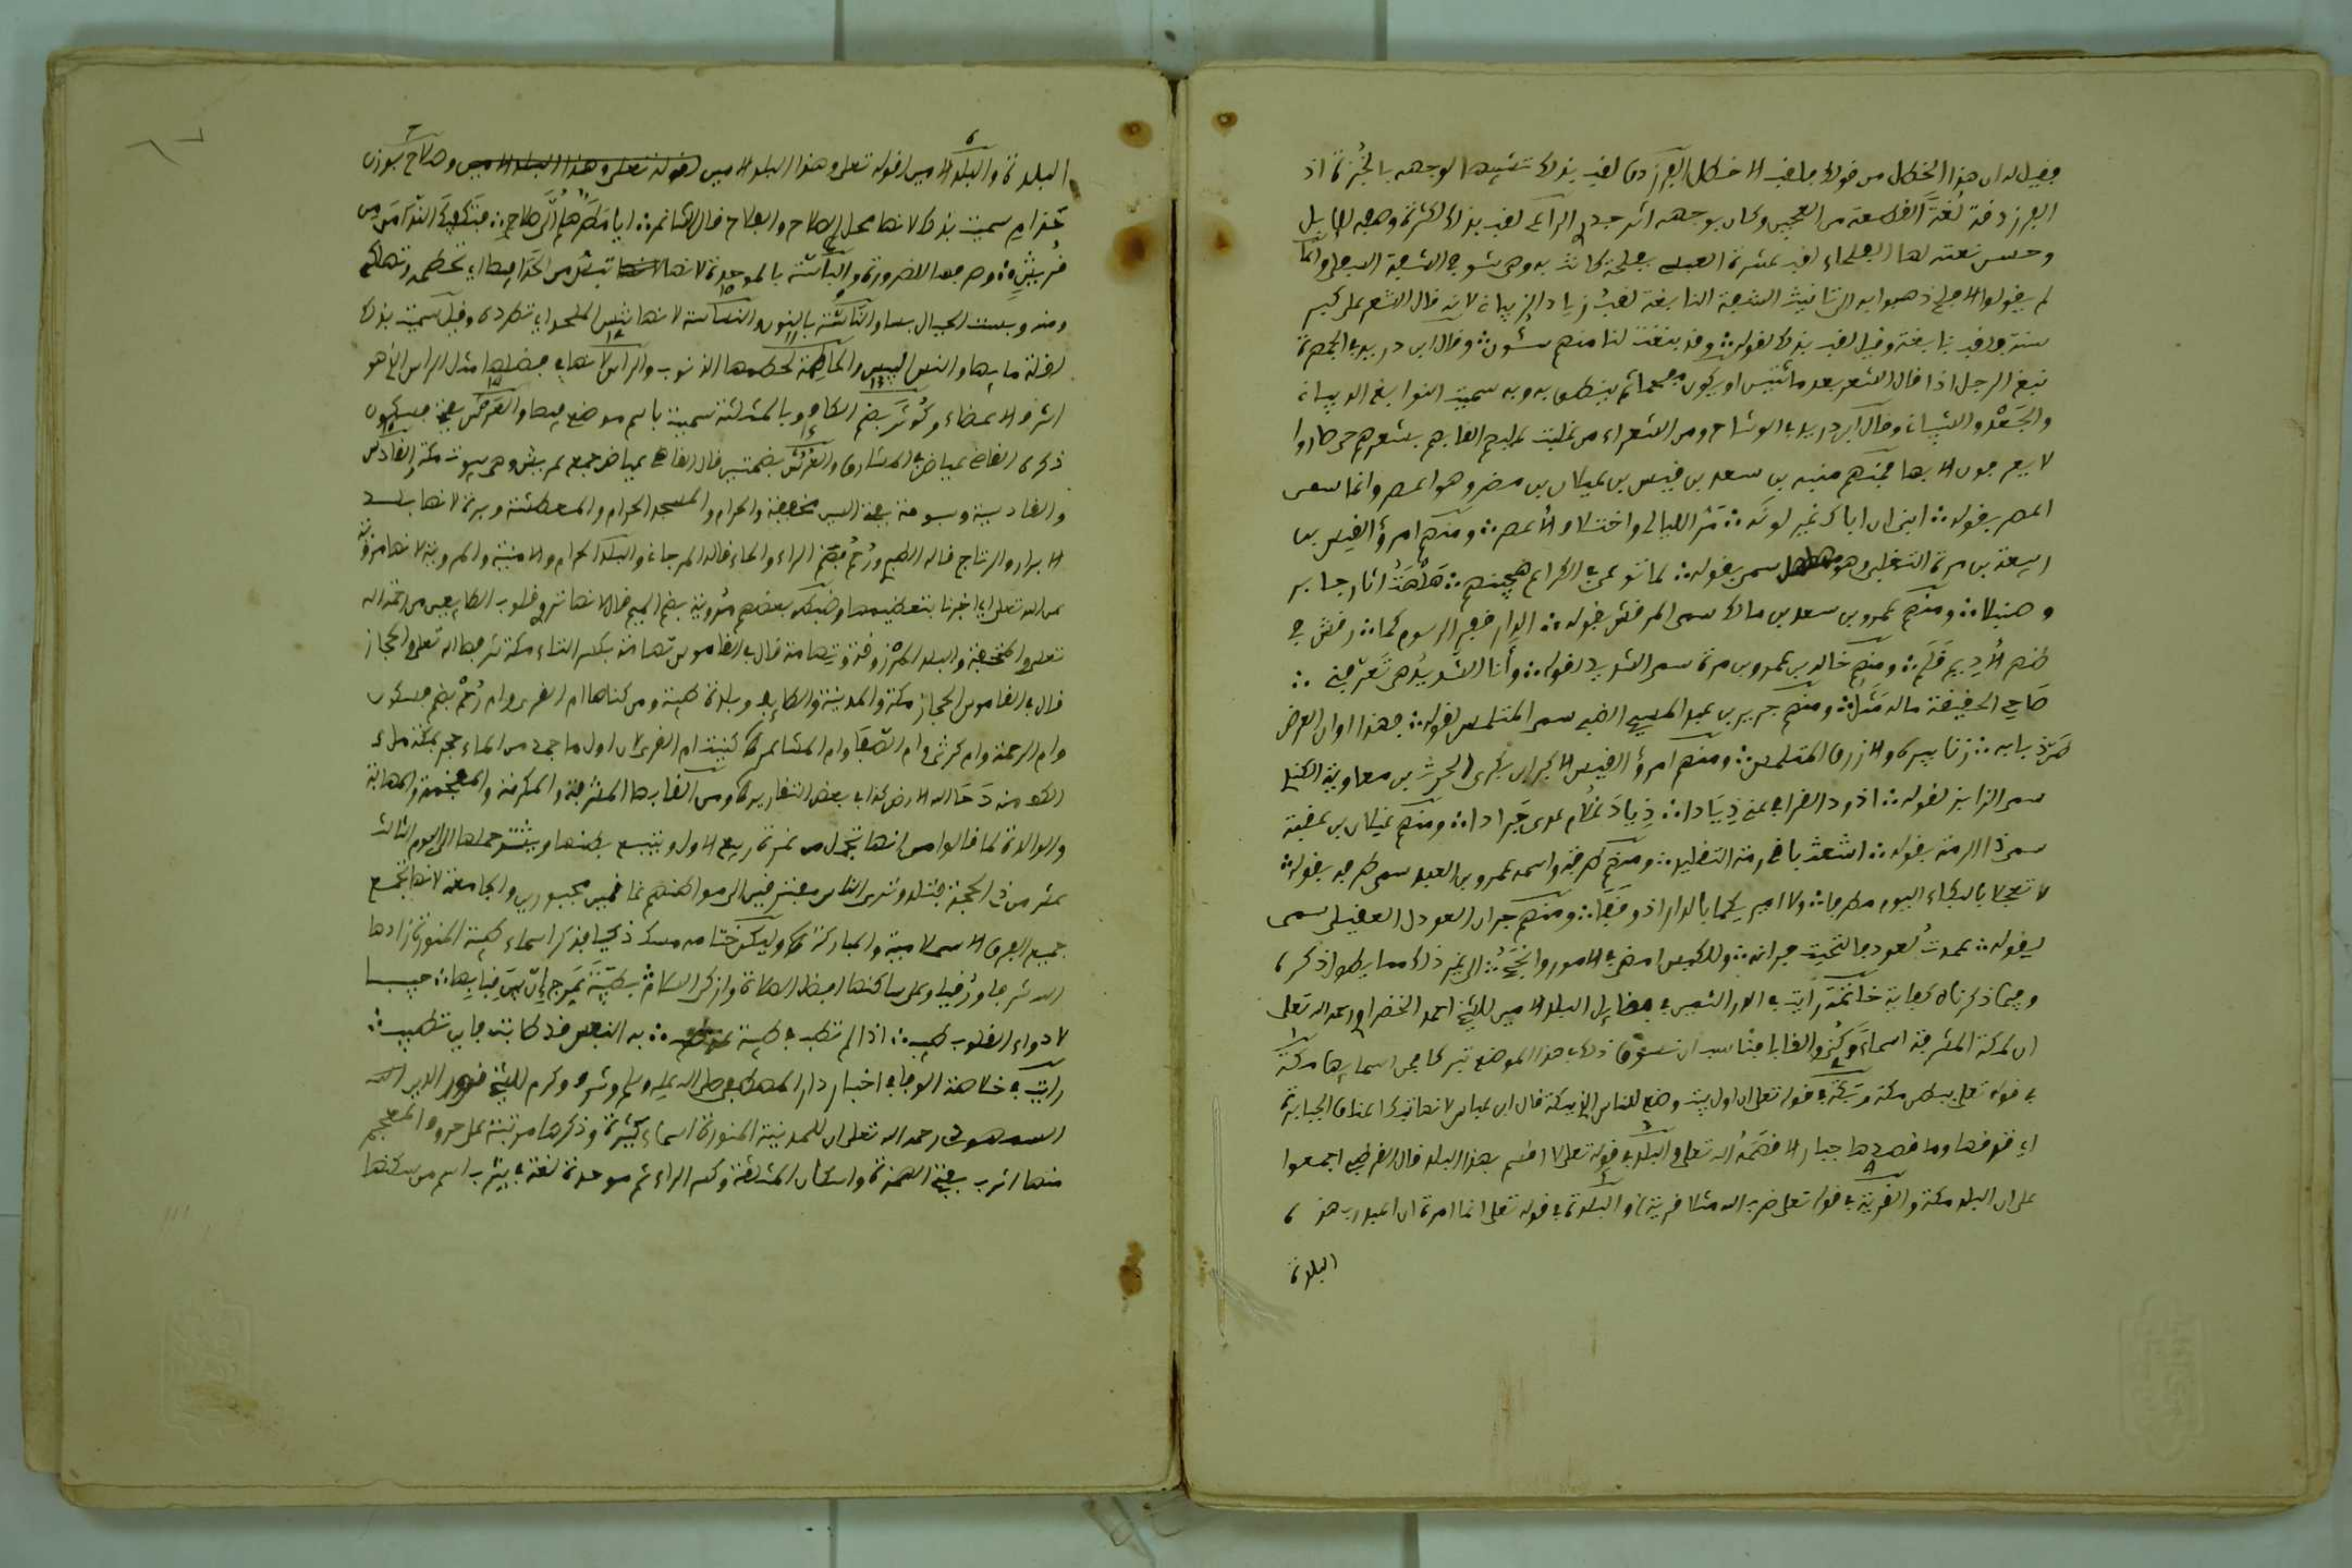 فقيل له ان هذا الخطل من قولك فلقب الاخطل الفرزدق لقب بذلك تشبيها لوجهه بالخبزة اذ
الفرزدقة لغة القطعة من العجين وكان بوجهه اثر جدري الراعي لقب بذلك لكثرة وصفه للابل
وحسن نعته لها الفلحاء لقب عنترة العبسي بفلحة كانت به وهي شق في الشفة السفلى وانما
لم يقولوا الافلح ذهبوا به الى تانيث الشفة النابغة لقب زياد الذبياني لانه قال الشعر على كبر
سنه ولقب نابغة وقيل لقب بذلك لقوله وقد نبغت لنا منهم شئون وقال ابن دريد في الجمهرة
نبغ الرجل اذا قال الشعر بعد ما يسن او يكون مفحما ثم ينطق به وبه سميت النوابغ الذبياني
والجعدي والشيباني وقال ابن دريد في الوشاح ومن الشعراء من غلبت عليهم القابهم بشعرهم حتى صاروا
لا يعرفون الا بها فمنهم منبه بن سعد بن قيس بن عيلان بن مضر وهو اعصر وانما سمى
اعصر بقوله ابني ان اباك غير لونه مر الليالي واختلاف الاعصر ومنهم امرؤ القيس بن
ربيعة بن مرة التغلبي وهو مهلهل سمي بقوله لما توعر في الكراع هجينهم هلهلت اثار جابر
وصنبلا ومنهم عمرو بن سعد بن مالك سمى المرقش بقوله الدار قفر والرسوم كما رقش في
ظهر الاديم قلم ومنهم خالد بن عمرو بن مرة سمى الشريد لقوله وانا الشريد لمن تعرفني
حامي الحقيقة ماله مثل ومنهم جرير بن عبد المسيح الضبعي سمى المتلمس لقوله فهذا اوان العرض
حي ذبابه زنابيره والازرق المتلمس ومنهم امرؤ القيس الاكبر بن بكر بن الحرث بن معاوية الكندي
سمى الذايد لقوله اذود القوافي عني ذيادا ذياد غلام غوي جرادا ومنهم غيلان بن عقبة
سمى ذا الرمة بقوله اشعث باقي رمة التقليد ومنهم طرفة واسمه عمرو بن العبد سمى طرفة بقوله
لا تعجلا بالبكاء اليوم مطرفا ولا اميريكما بالدار اذ وقفا ومنهم جران العود العقيلي سمى
بقوله عمدت لعود فالتحيت جرانه وللكيس امضى في الامور وانجح الى غير ذلك مما يطول ذكره
وفيما ذكرناه كفاية خاتمة رايت في الدر الثمين في فضايل البلد الامين للشيخ احمد الخضراوي رحمه الله تعالى
ان لمكة المشرفة اسماء وكنى والقابا فناسب ان نسوق ذلك في هذا الموضع تبركا فمن اسمايها مكة
في قوله تعالى ببطن مكة وبكة في قوله تعالى ان اول بيت وضع للناس للذي ببكة قال ابن عباس لانها تبك اعناق الجبابرة
اي تدقها وما قصدها جبار الا قصمه الله تعالى والبلد في قوله تعالى لا اقسم بهذا البلد قال القرطبي اجمعوا
على ان البلد مكة والقرية في قوله تعالى ضرب الله مثلا قرية والبلدة في قوله تعالى انما امرت ان اعبد رب هذه
البلدة
البلدة والبلد الامين لقوله تعالى وهذا البلد الامين وصلاح بوزن
حذام سميت بذلك لانها محل الصلاح والفلاح قال الشاعر ابا مطر هلم الى صلاح فتكفيك الندامى من
قريش وصرفها للضرورة والباسة بالموحدة لانها تبس من الحد فيها اي تحطمه وتهلكه
ومنه وبست الجبال بسا والناسة بالنون والنساسة لانها تنس الملحد اي تطرده وقيل سميت بذلك
لقلة مايها والنس اليبس والحاطمة لحطمها الذنوب والراس لانها في فضلها مثل الراس الذي هو
اشرف الاعضاء وكوثى بضم الكاف وبالمثلثة سميت باسم موضع فيها والعرش بفتح فسكون
ذكره القاضي عياض في المشارق والعرش بضمتين قال القاضي عياض جمع عريش وهي بيوت مكة والقادس
والقادسية وسبوحة بفتح السين مخففة والحرام والمسجد الحرام والمعطشة وبرة لانها بلد
الابرار والرتاج قاله الطبري ورحم بضم الراء والحاء قاله المرجاني والبلد الحرام والامينة والمروية لانها مروية
عن الله تعالى
تعالى والمخفية والبلد المرزوقة وتهامة قال في القاموس تهامة بكسر التاء مكة شرفها الله تعالى والحجاز
قال في القاموس الحجاز مكة والمدينة والطايف وبلدة طيبة ومن كناها ام القرى وام رحم بضم فسكون
وام الرحمة وام كوثى وام الصفا وام المشاعر كنيت ام القرى لان اول ما جمد من الماء حجر بمكة
منه دحا الله الارض كذا في بعض التقارير ومن القابها المشرفة والمكرمة والمفخمة والمهابة
والوالدة كما قالوا من انها تحمل من غرة ربيع الاول وينتفخ بطنها ويشتد حملها الى اليوم الثالث
عشر من ذي الحجة فتلد وترى الناس مفترقين الى مواطنهم غانمين مجبورين والجامعة لانها تجمع
جميع الفرق الاسلامية والمباركة وليكن ختامه مسك ذكيا بذكر اسماء طيبة المنورة زادها
الله شرفا ورقيا وعلى ساكنها افضل الصلاة وازكى السلام بطيبة عرج ان بين قبابها حبيبا
لادواء القلوب طبيب اذا لم تطب في طيبة عند طيب به النفس قد طابت فاين تطيب
رايت في خلاصة الوفا في اخبار دار المصطفى صلى الله عليه وسلم وشرف وكرم للشيخ نور الدين
السمهودي رحمه الله تعالى ان للمدينة المنورة اسماء كثيرة وذكرها مرتبة على حروف المعجم
منها اثرب بفتح الهمزة واسكان المثلثة وكسر الراء ثم موحدة لغة في يثرب اسم من سكنها